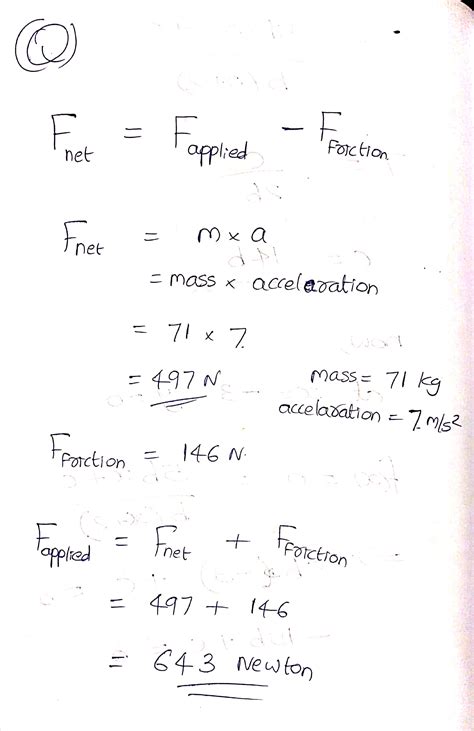 Q
F net = F applied - F friction
F net = m x a
= mass x acceleration
= 71 x 7
= 497 N
mass = 71 kg
acceleration = 7 m/s²
F friction = 146 N
F applied = F net + F friction
= 497 + 146
= 643 Newton